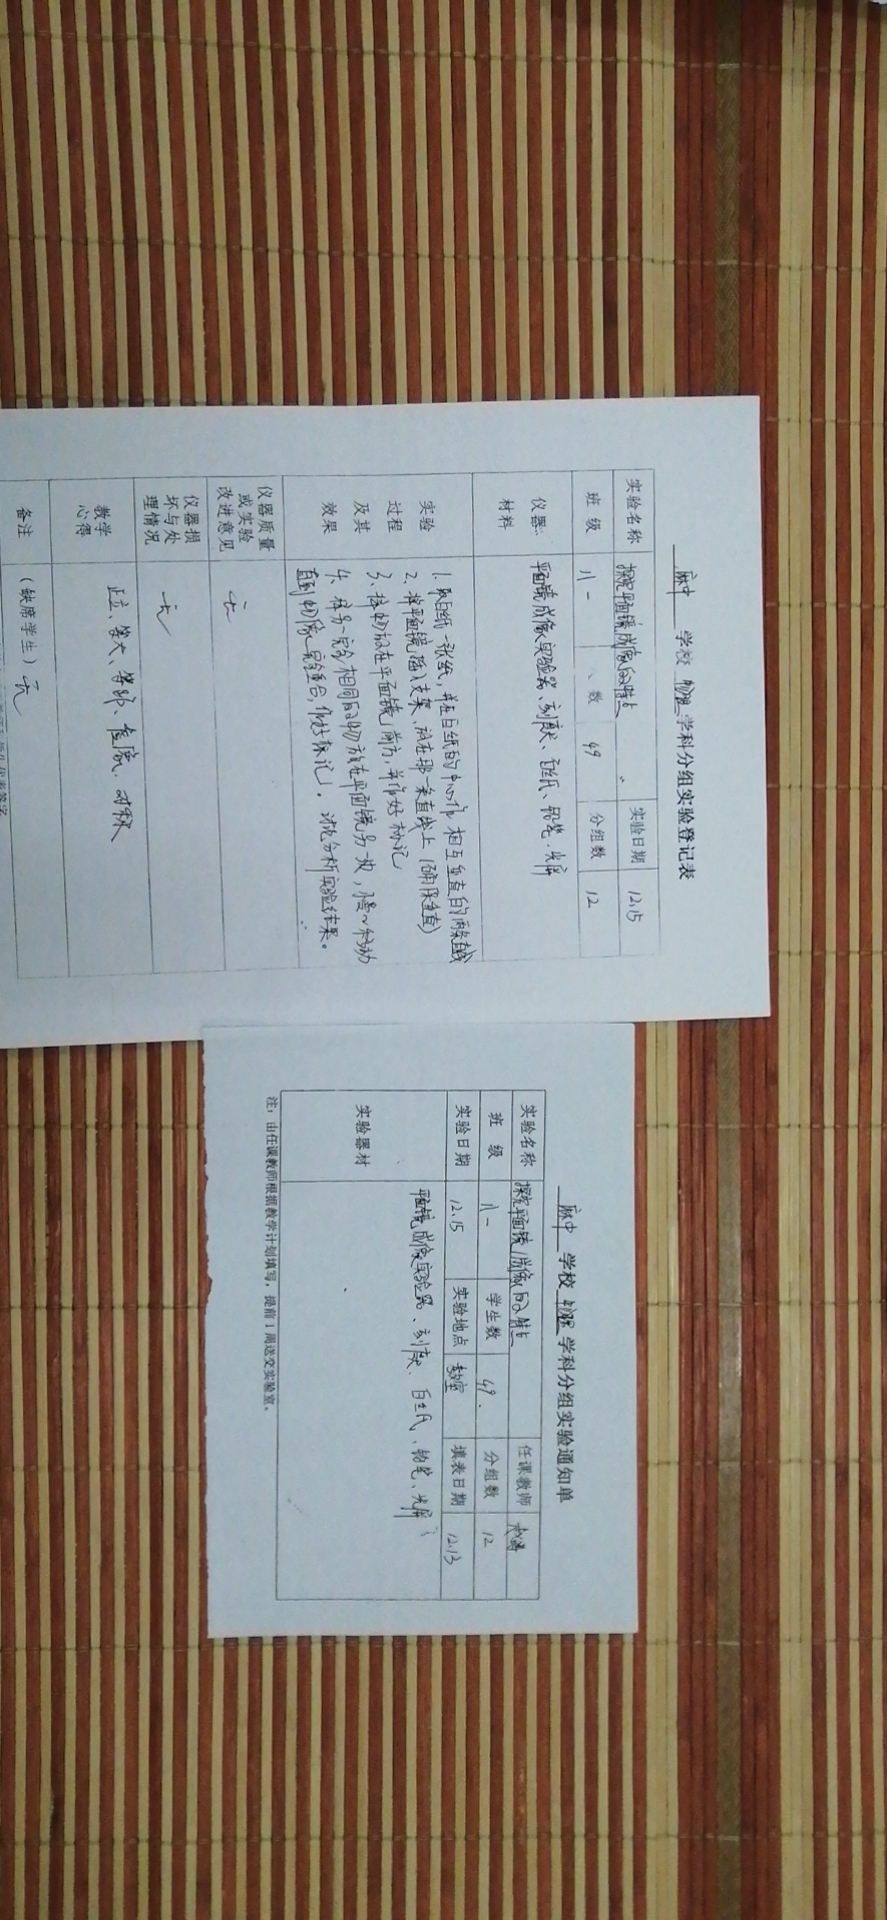 麻中 学校 物理 学科分组实验登记表
实验名称 探究平面镜成像的特点 实验日期 12.15
班 级 八一 数 49 分组数 12
仪器
材料
平面镜成像实验器、刻度尺、白纸、铅笔、光屏
实验
过程
及其
效果
1、取白纸一张纸,并在白纸的中心作相互垂直的两条直线
2、将平面镜插入支架、放在那一条直线上(确保垂直)
3、将物放在平面镜前方,并作好标记
4、将另一完全相同的物放在平面镜另一,慢慢移动
直到物像完全重合,作好标记。讨论分析实验结果。
仪器质量
或实验
改进意见
无
仪器损
坏与处
理情况
无
教学
心得
正立、等大、等距、虚像、对称
备注 (缺席学生)无
麻中 学校 物理 学科分组实验通知单
实验名称 探究平面镜成像的特点 任课教师
班 级 八一 学生数 49 分组数 12
实验日期 12.15 实验地点 教室 填表日期 12.13
实验器材 平面镜成像实验器、刻度尺、白纸、铅笔、光屏
注:由任课教师根据教学计划填写,提前1周送交实验室。